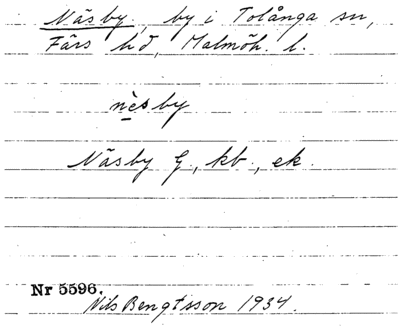 Näsby, by i Tolånga sn,
Färs hd, Malmöh. l.
nèsby
Näsby G, kb., ek.
Nr 5596.
Nils Bengtsson 1934.